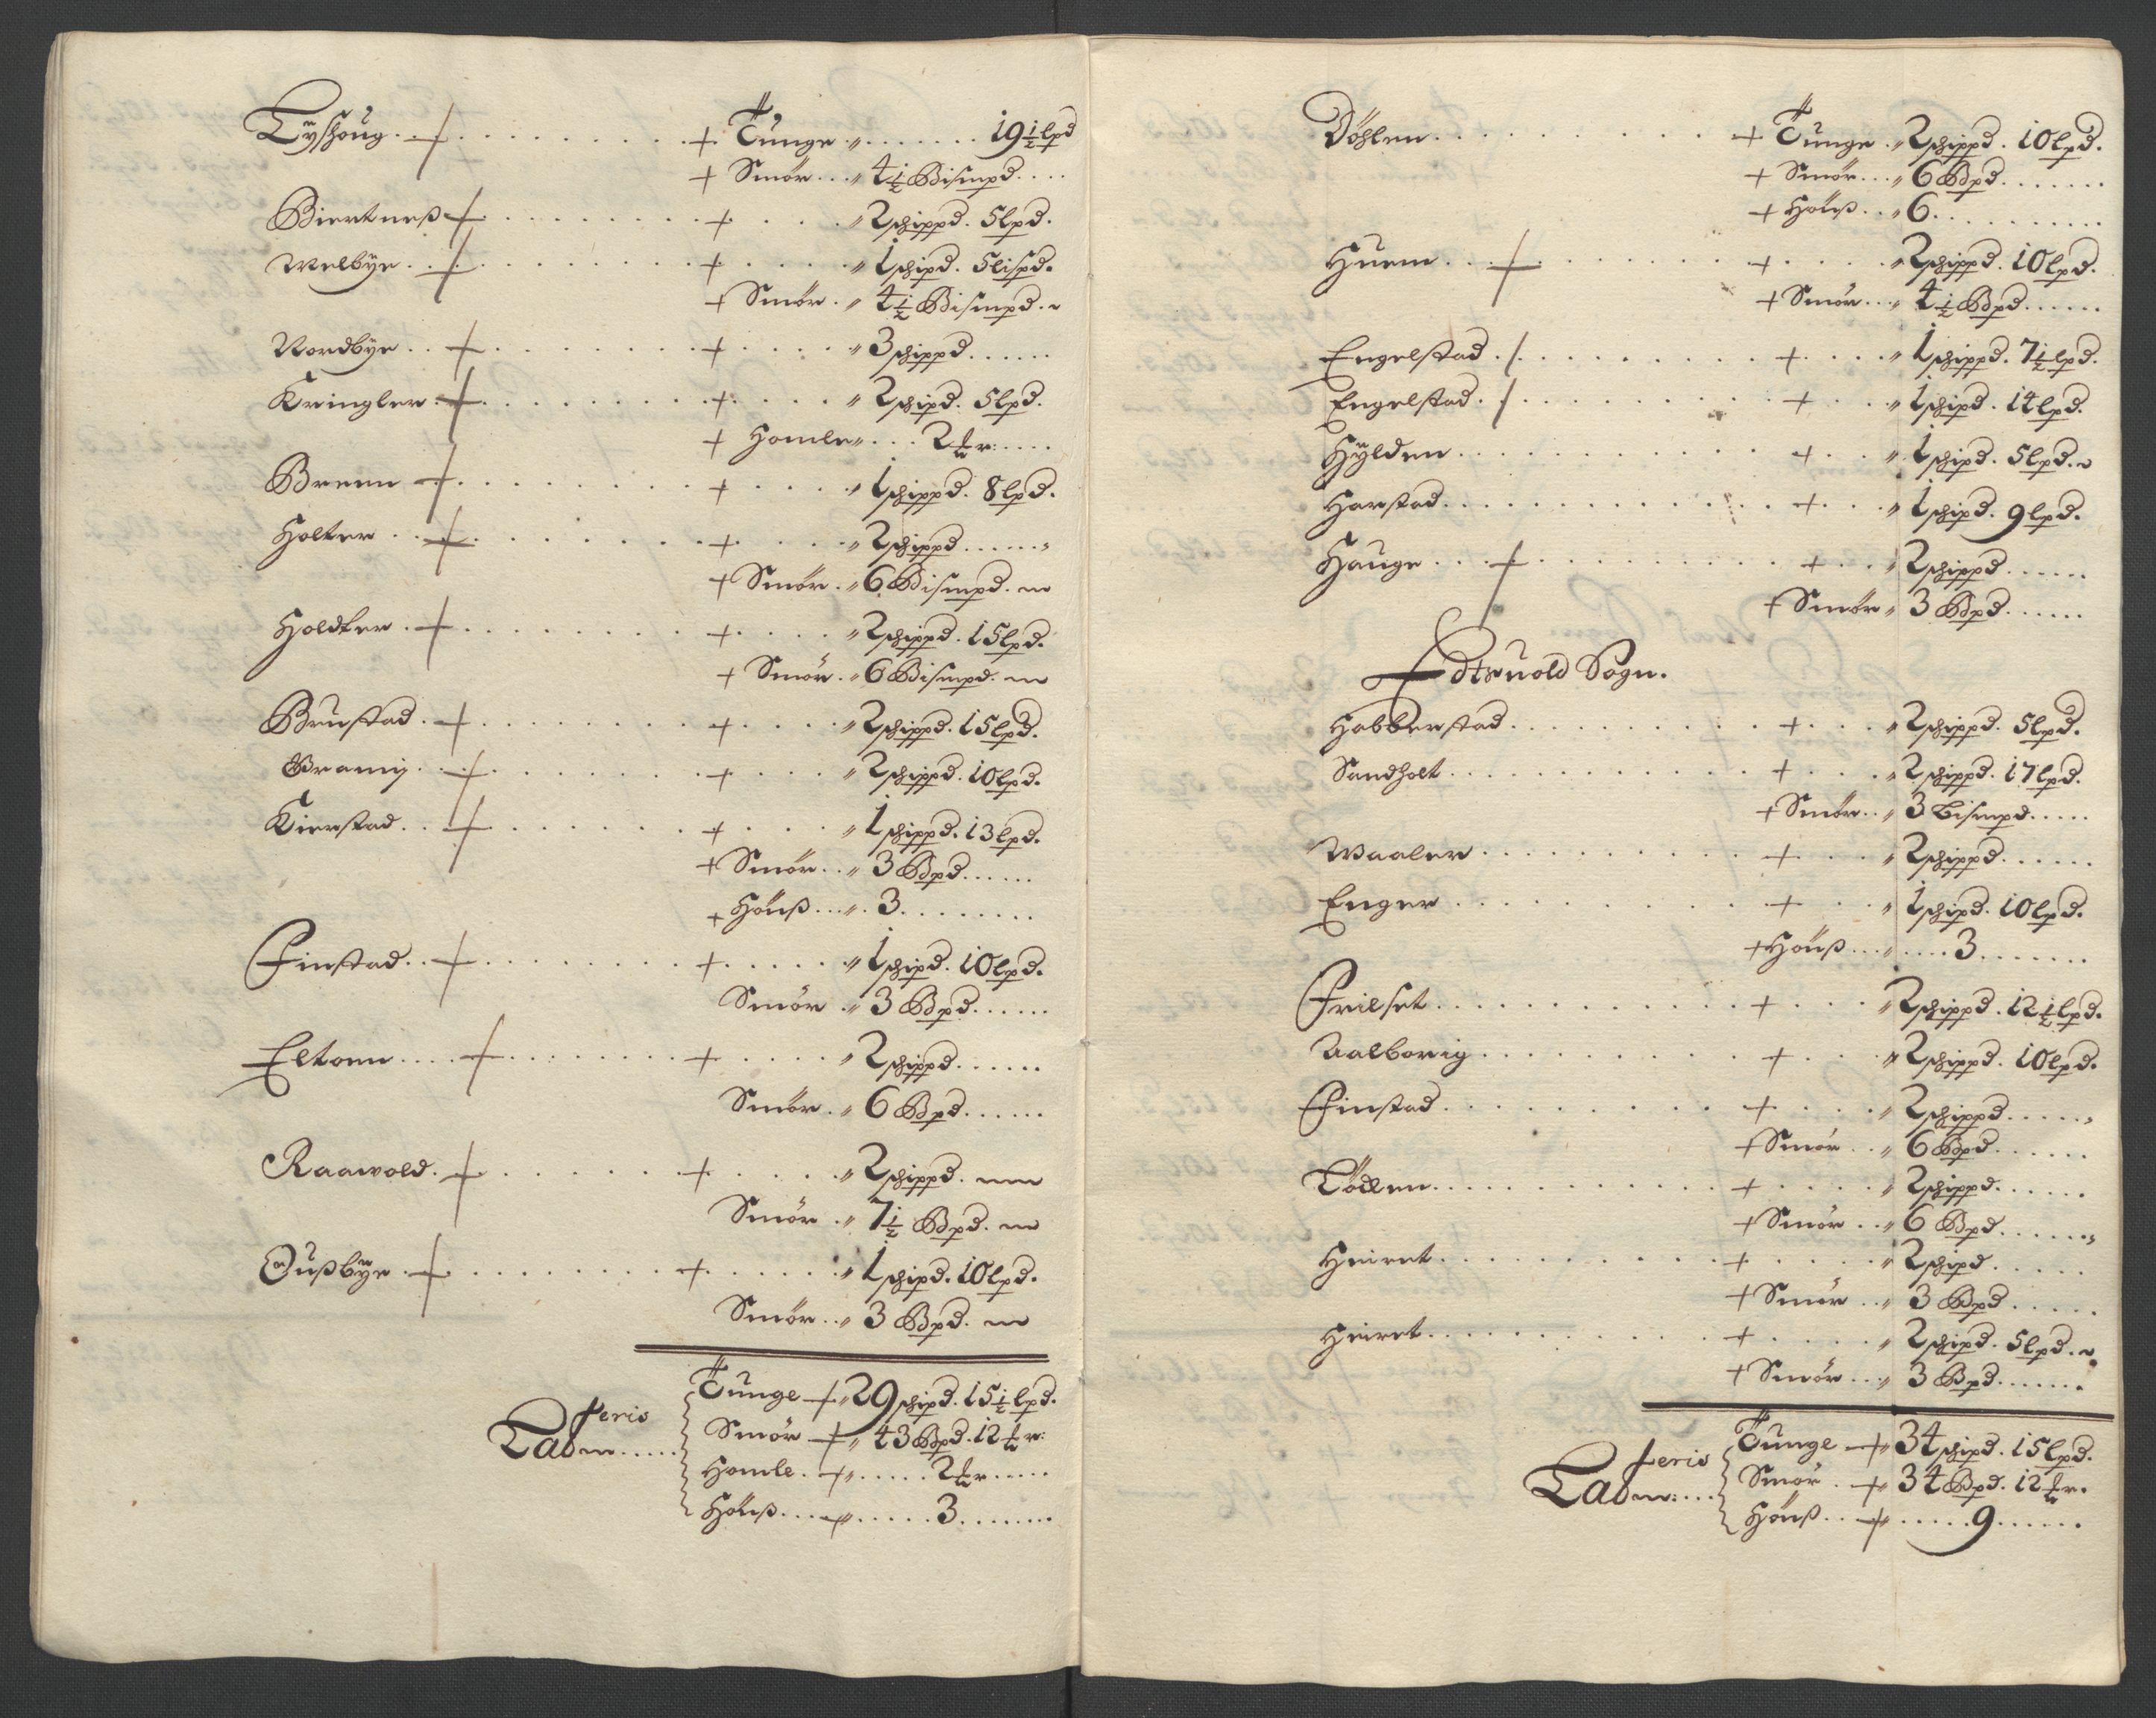 Lÿshoug . + . . . . . . . . + Tunge „ . . . . . . . 19½ lpd
+ Smör . . . „ 4½ Bismpd . . . .
Biertneß + . . . . . . . + . . . . „ 2 schippd . 5 lpd .
Welbÿe . + . . . . . . . + . . . . „ 1 schipd . 5 lispd .
+ Smör . „ 4½ Bismpd .
Nordbÿe . . + . . . . . . . + . . . . „ 3 schippd . . . . . .
Kringler . + . . . . . . . + . . . . „ 2 schipd . 5 lpd .
+ Homle „ . . . 2 ₶r : . . . .
Breen + . . . . . . . + . . . . „ 1 schippd . 8 lpd .
Holter . . + . . . . . . . + . . . . „ 2 schippd . . . . . .
+ Smör . „ 6 Bismpd .
Holdter . + . . . . . . . + . . . . „ 2 schippd . 15 lpd .
+ Smör . „ 6 Bismpd .
Brustad . + . . . . . . . + . . . . „ 2 schippd . 15 lpd .
+ . . . . „ 2 schippd . 10 lpd .
Kierstad . . + . . . . . . . + . . . . „ 1 schippd . 13 lpd .
+ Smör . . „ 3 Bpd . . . . . .
+ Höuß . . . „ . 3 . . . . . . . .
Finstad . . + . . . . . . . + . . . . . „ 1 schipd . 10 lpd .
Smör . „ 3 Bpd . . . . . .
Eltonn . . . . + . . . . . . . + . . . . „ 2 schippd . . . . . .
Smör . „ 6 Bpd . . . . . .
Raawold . + . . . . . . . + . . . . „ 2 schippd .
Smör . „ 7½ Bpd .
Oußbÿe . + . . . . . . . + . . . . . „ 1 schipd . 10 lpd .
Smör . . „ 3 Bpd .
Lateris
Tunge + „ 29 schipd . 15½ lpd .
Smör + „ 43 Bpd . 12 ₶r :
Homle . + „ . . . . . 2 ₶r . . . . .
Höuß . . . . + „ . . . . . 3 . . . . . . . .
Döhlen . . . . . . . . . . + Tunge . „ 2 schippd . 10 lpd .
+ Smör . . . „ 6 Bpd . . . . . . .
+ Höuß . . . „ 6 . . . . . . . . . .
Huem . . . + . . . . . . . + . . . . „ 2 schippd . 10 lpd .
+ Smör . . . „ 4½ Bpd . . . . . .
Engelstad . / . . . . . . . . + . . . . „ 1 schippd . 7½ lpd .
Engelstad . / . . . . . . . . + . . . „ 1 schipd . 14 lpd .
Hÿlden . . . . . . . . . . . + . . . „ 1 schipd . 5 lpd .
Harstad . . . . . . . . . . . + . . . „ 1 schipd . 9 lpd .
Hauge . . . + . . . . . . . . + . . . „ 2 schippd . . . . . .
+ Smör „ 3 Bpd . . . . . .
Edtsuold Sogn .
Habberstad . . . . . . . . . + . . . . „ 2 schippd . 5 lpd .
Sandholt . . . . . . . . . . + . . . . „ 2 schippd . 17 lpd .
+ Smör . . „ 3 bismpd . . . . .
Waaler . . . . . . . . . . + . . . . „ 2 schippd . . . . . .
Enger . . . . . . . . . . + . . . . „ 1 schipd . 10 lpd .
+ Höuß . . . „ . . . . 3 . . . . . . .
Frilset . . . . . . . . . . + . . . . „ 2 schippd . 12½ lpd .
Aalborig . . . . . . . . . . + . . . . „ 2 schippd . 10 lpd .
Finstad . . . . . . . . . . + . . . . „ 2 schippd . . . . . .
+ Smör . . „ 6 Bpd . . . . . .
. . . . . . . . . . + . . . . „ 2 schippd . . . . . .
+ Smör . . „ 6 Bpd . . . . . .
Heiret . . . . . . . . . . + . . . . . „ 2 schipd . . . . . .
+ Smör . . „ 3 Bpd . . . . . .
Heiret . . . . . . . . . . + . . . . . „ 2 schipd . 5 lpd .
+ Smör . . . „ 3 Bpd . . . . . .
Lateris
Tunge + „ 34 schipd . 15 lpd .
Smör . + „ 34 Bpd . 12 ₶r .
Höuß . . + „ . . . . . 9 . . . . . .